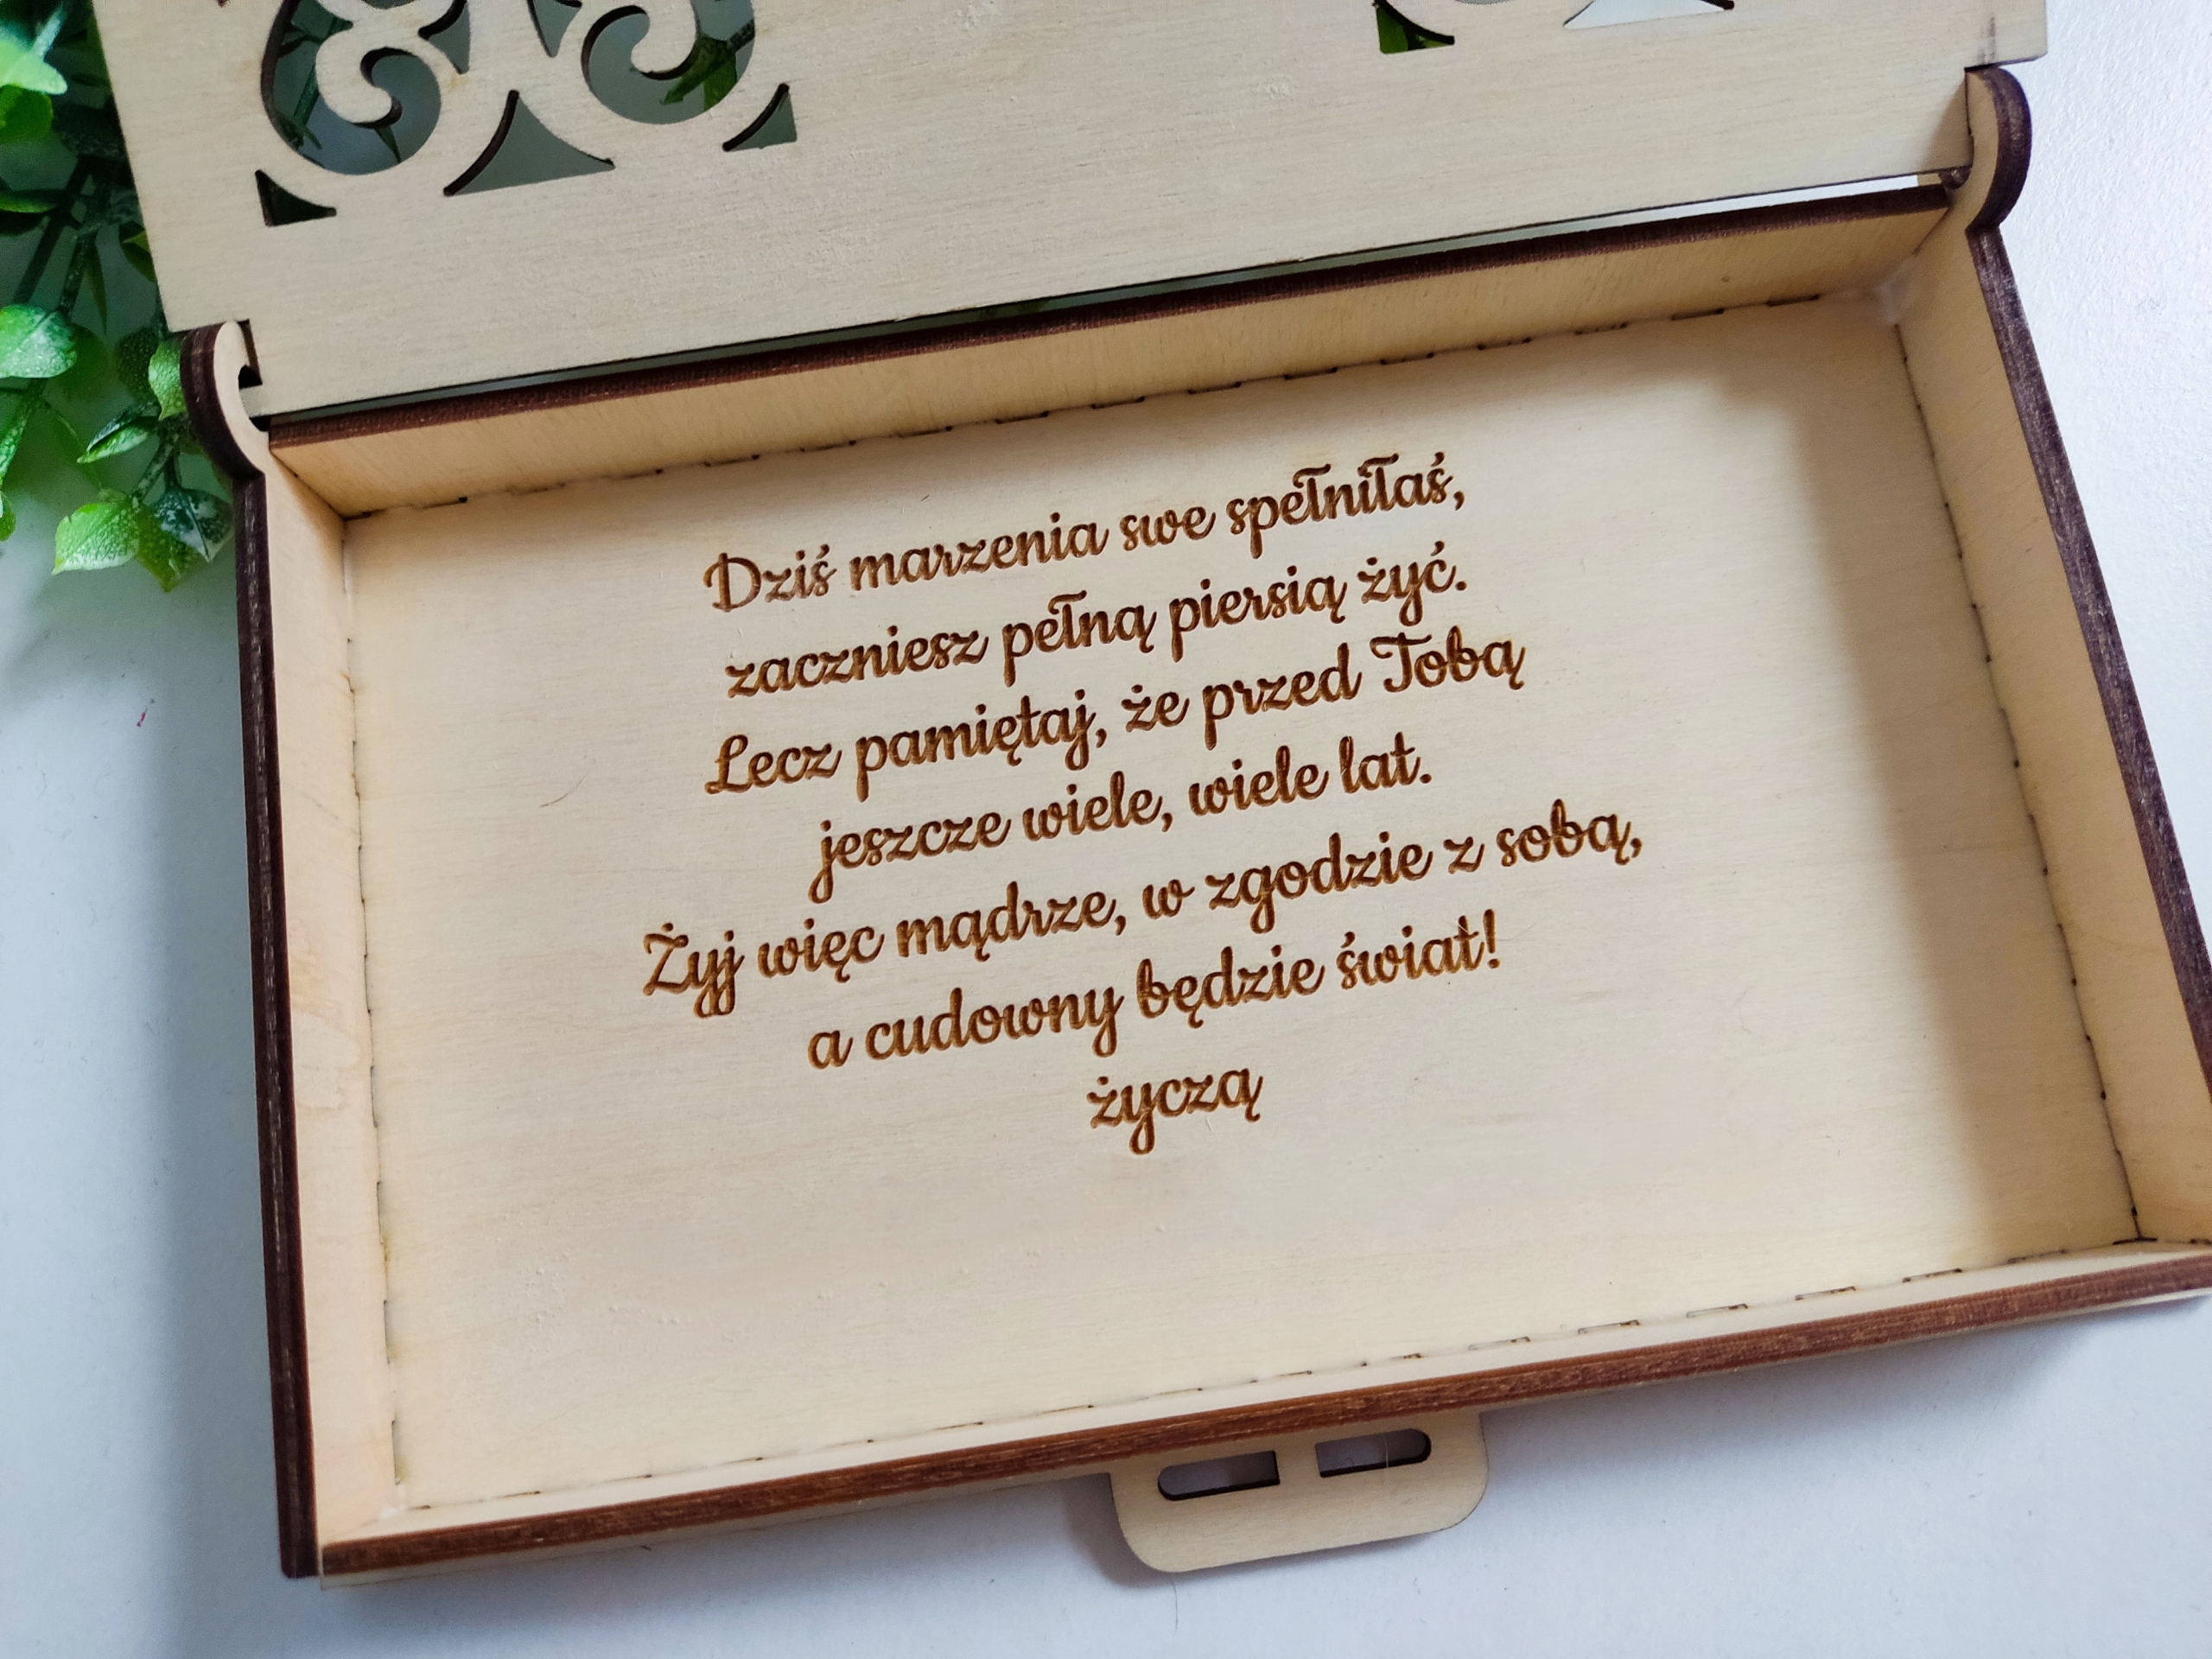 Dziś marzenia swe spełniłaś,
zaczniesz pełną piersią żyć.
Lecz pamiętaj, że przed Tobą
jeszcze wiele, wiele lat.
Żyj więc mądrze, w zgodzie z sobą,
a cudowny będzie świat!
życzą